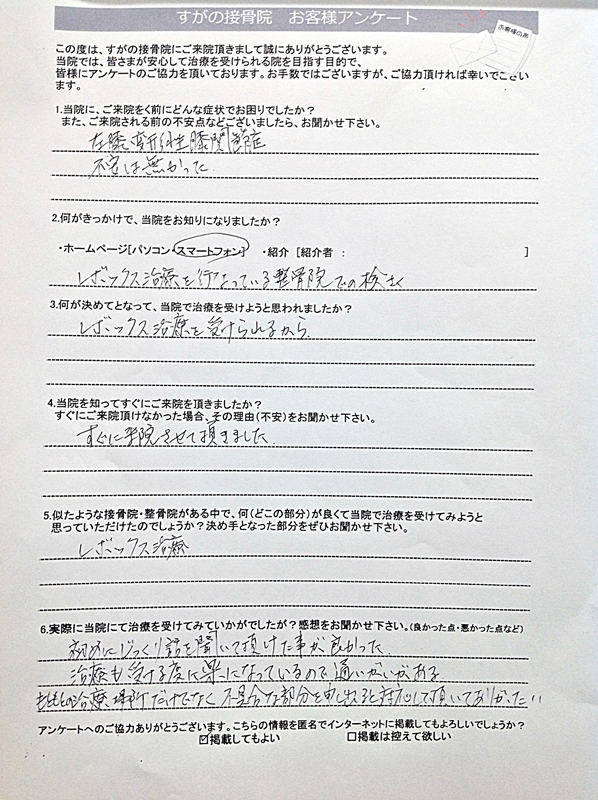 すがの接骨院 お客様アンケート
お客様の声
この度は、すがの接骨院にご来院頂きまして誠にありがとうございます。
当院では、皆さまが安心して治療を受けられる院を目指す目的で、
皆様にアンケートのご協力を頂いております。お手数ではございますが、ご協力頂ければ幸いでござい
ます。
1.当院に、ご来院をく前にどんな症状でお困りでしたか?
また、ご来院される前の不安点などございましたら、お聞かせ下さい。
左膝変形性膝関節症
不安は無かった
2.何がきっかけで、当院をお知りになりましたか?
・ホームページ[パソコン・スマートフォン] ・紹介 [紹介者 : ]
レボックス治療を行なっている整骨院での検索
3.何が決めてとなって、当院で治療を受けようと思われましたか?
レボックス治療を受けられるから
4.当院を知ってすぐにご来院を頂きましたか?
すぐにご来院頂けなかった場合、その理由(不安)をお聞かせ下さい。
すぐに来院させて頂きました
5.似たような接骨院・整骨院がある中で、何(どこの部分)が良くて当院で治療を受けてみようと
思っていただけたのでしょうか?決め手となった部分をぜひお聞かせ下さい。
レボックス治療
6.実際に当院にて治療を受けてみていかがでしたが?感想をお聞かせ下さい。(良かった点・悪かった点など)
初めにじっくり話を聞いて頂けた事が良かった
治療も受ける度に楽になっているので通いがいがある
もともとの治療場所だけでなく不具合な部分を申し出ると対応して頂いてありがたい
アンケートへのご協力ありがとうございます。こちらの情報を匿名でインターネットに掲載してもよろしいでしょうか?
☑掲載してもよい □掲載は控えて欲しい